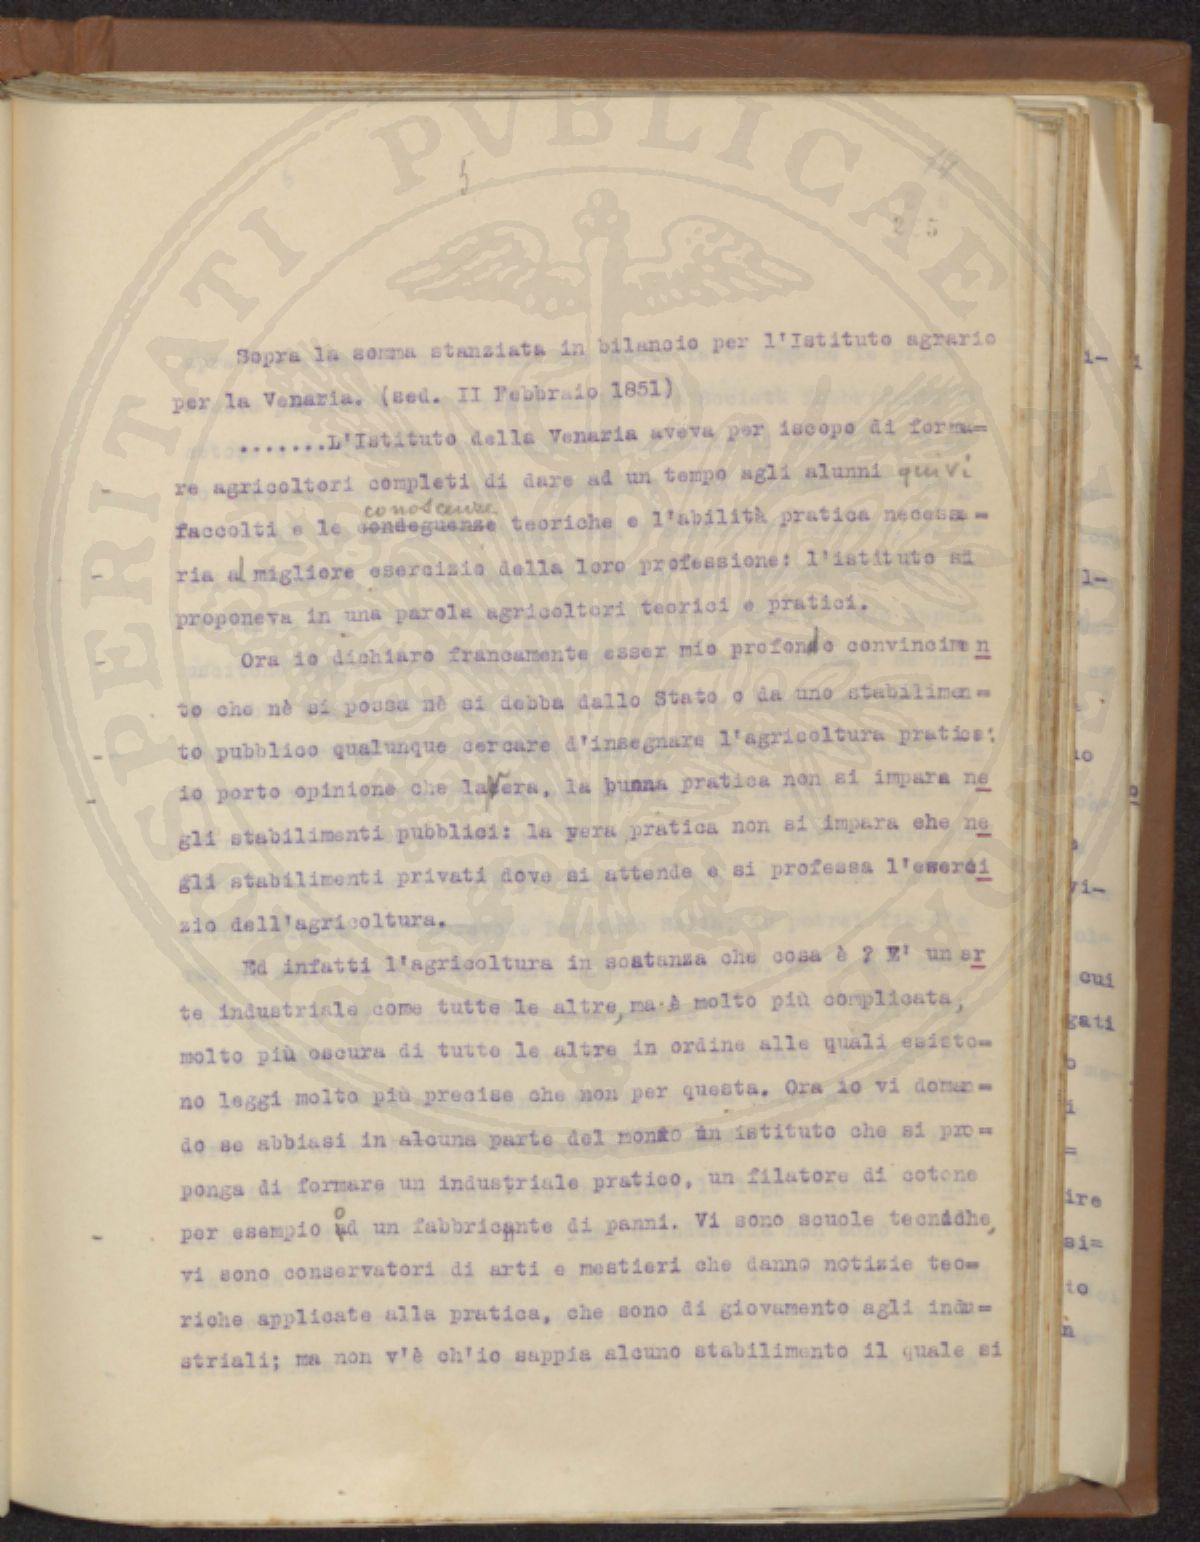 5
14
PROSPERITATI PVBLICAE
Sopra la somma stanziata in bilancio per l'Istituto agrario
per la Venaria. (sed. II Febbraio 1851)
.......L'Istituto della Venaria aveva per iscopo di forma=
re agricoltori completi di dare ad un tempo agli alunni quivi
faccolti e le condeguenze conoscenze teoriche e l'abilità pratica necessa=
ria al migliore esercizio della loro professione: l'istituto si
proponeva in una parola agricoltori teorici e pratici.
Ora io dichiaro francamente esser mio profondo convincimen
to che nè si possa nè si debba dallo Stato o da uno stabilimen=
to pubblico qualunque cercare d'insegnare l'agricoltura pratica:
io porto opinione che la vera, la buona pratica non si impara ne
gli stabilimenti pubblici: la vera pratica non si impara che ne
gli stabilimenti privati dove si attende e si professa l'eserci
zio dell'agricoltura.
Ed infatti l'agricoltura in sostanza che cosa è ? E' un ar
te industriale come tutte le altre, ma è molto più complicata,
molto più oscura di tutte le altre in ordine alle quali esisto=
no leggi molto più precise che non per questa. Ora io vi doman=
do se abbiasi in alcuna parte del mondo un istituto che si pro=
ponga di formare un industriale pratico, un filatore di cotone
per esempio od un fabbricante di panni. Vi sono scuole tecniche,
vi sono conservatori di arti e mestieri che danno notizie teo=
riche applicate alla pratica, che sono di giovamento agli indu=
striali; ma non v'è ch'io sappia alcuno stabilimento il quale si
i-
l-
io
vi-
cui
gati
o
i
=
ire
si=
to
n